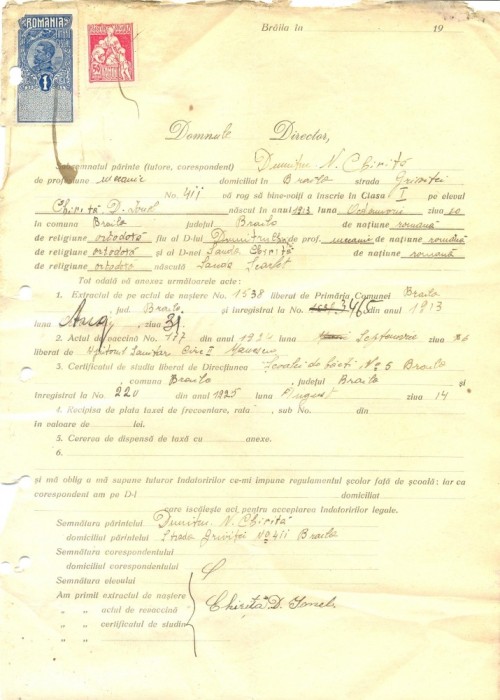 ROMANIA
1
Brăila în 19
Domnule Director,
Subsemnatul părinte (tutore, corespondent) Dumitru N. Chiriță
de profesiune mecanic domiciliat în Braila strada Griviței
No. 411 vă rog să bine-voiți a înscrie în Clasa I pe elevul
Chiriță D. născut în anul 1913 luna Octomvrie ziua
în comuna Braila județul Braila de națiune română
de religiune ortodoxă fiu al D-lui Dumitru de prof. mecanic de națiune română
de religiune ortodoxă și al D-nei Sanda Chiriță de națiune romană
de religiune ortodoxă născută Sanda Scarlat
Tot odată vă anexez următoarele acte:
1. Extractul de pe actul de naștere No. 1538 liberat de Primăria Comunei Braila
jud. Braila și înregistrat la No. 3465 din anul 1913
luna Aug ziua 31.
2. Actul de vaccină No. 117 din anul 1924 Septemvrie ziua
liberat de Sanitar Circ. I
3. Certificatul de studii liberat de Direcțiunea Școalei de băeți No 5 Braila
comuna Braila județul Braila și
înregistrat la No. 220 din anul 1925 luna August ziua 14
4. Recipisa de plata taxei de frecventare, rata sub No. din
în valoare de lei.
5. Cererea de dispensă de taxă cu anexe.
6.
și mă oblig a mă supune tuturor îndatoririlor ce-mi impune regulamentul școlar față de școală: iar ca
corespondent am pe D-l domiciliat
care iscălește aci, pentru acceptarea îndatoririlor legule.
Semnătura părintelui Dumitru N. Chiriță
domiciliul părintelui Strada Griviței No 411 Braila
Semnătura corespondentului
domiciliul corespondentului
Semnătura elevului
Am primit extractul de naștere Chiriță D. Ionel
„ „ actul de revaccină
„ „ certificatul de studiu